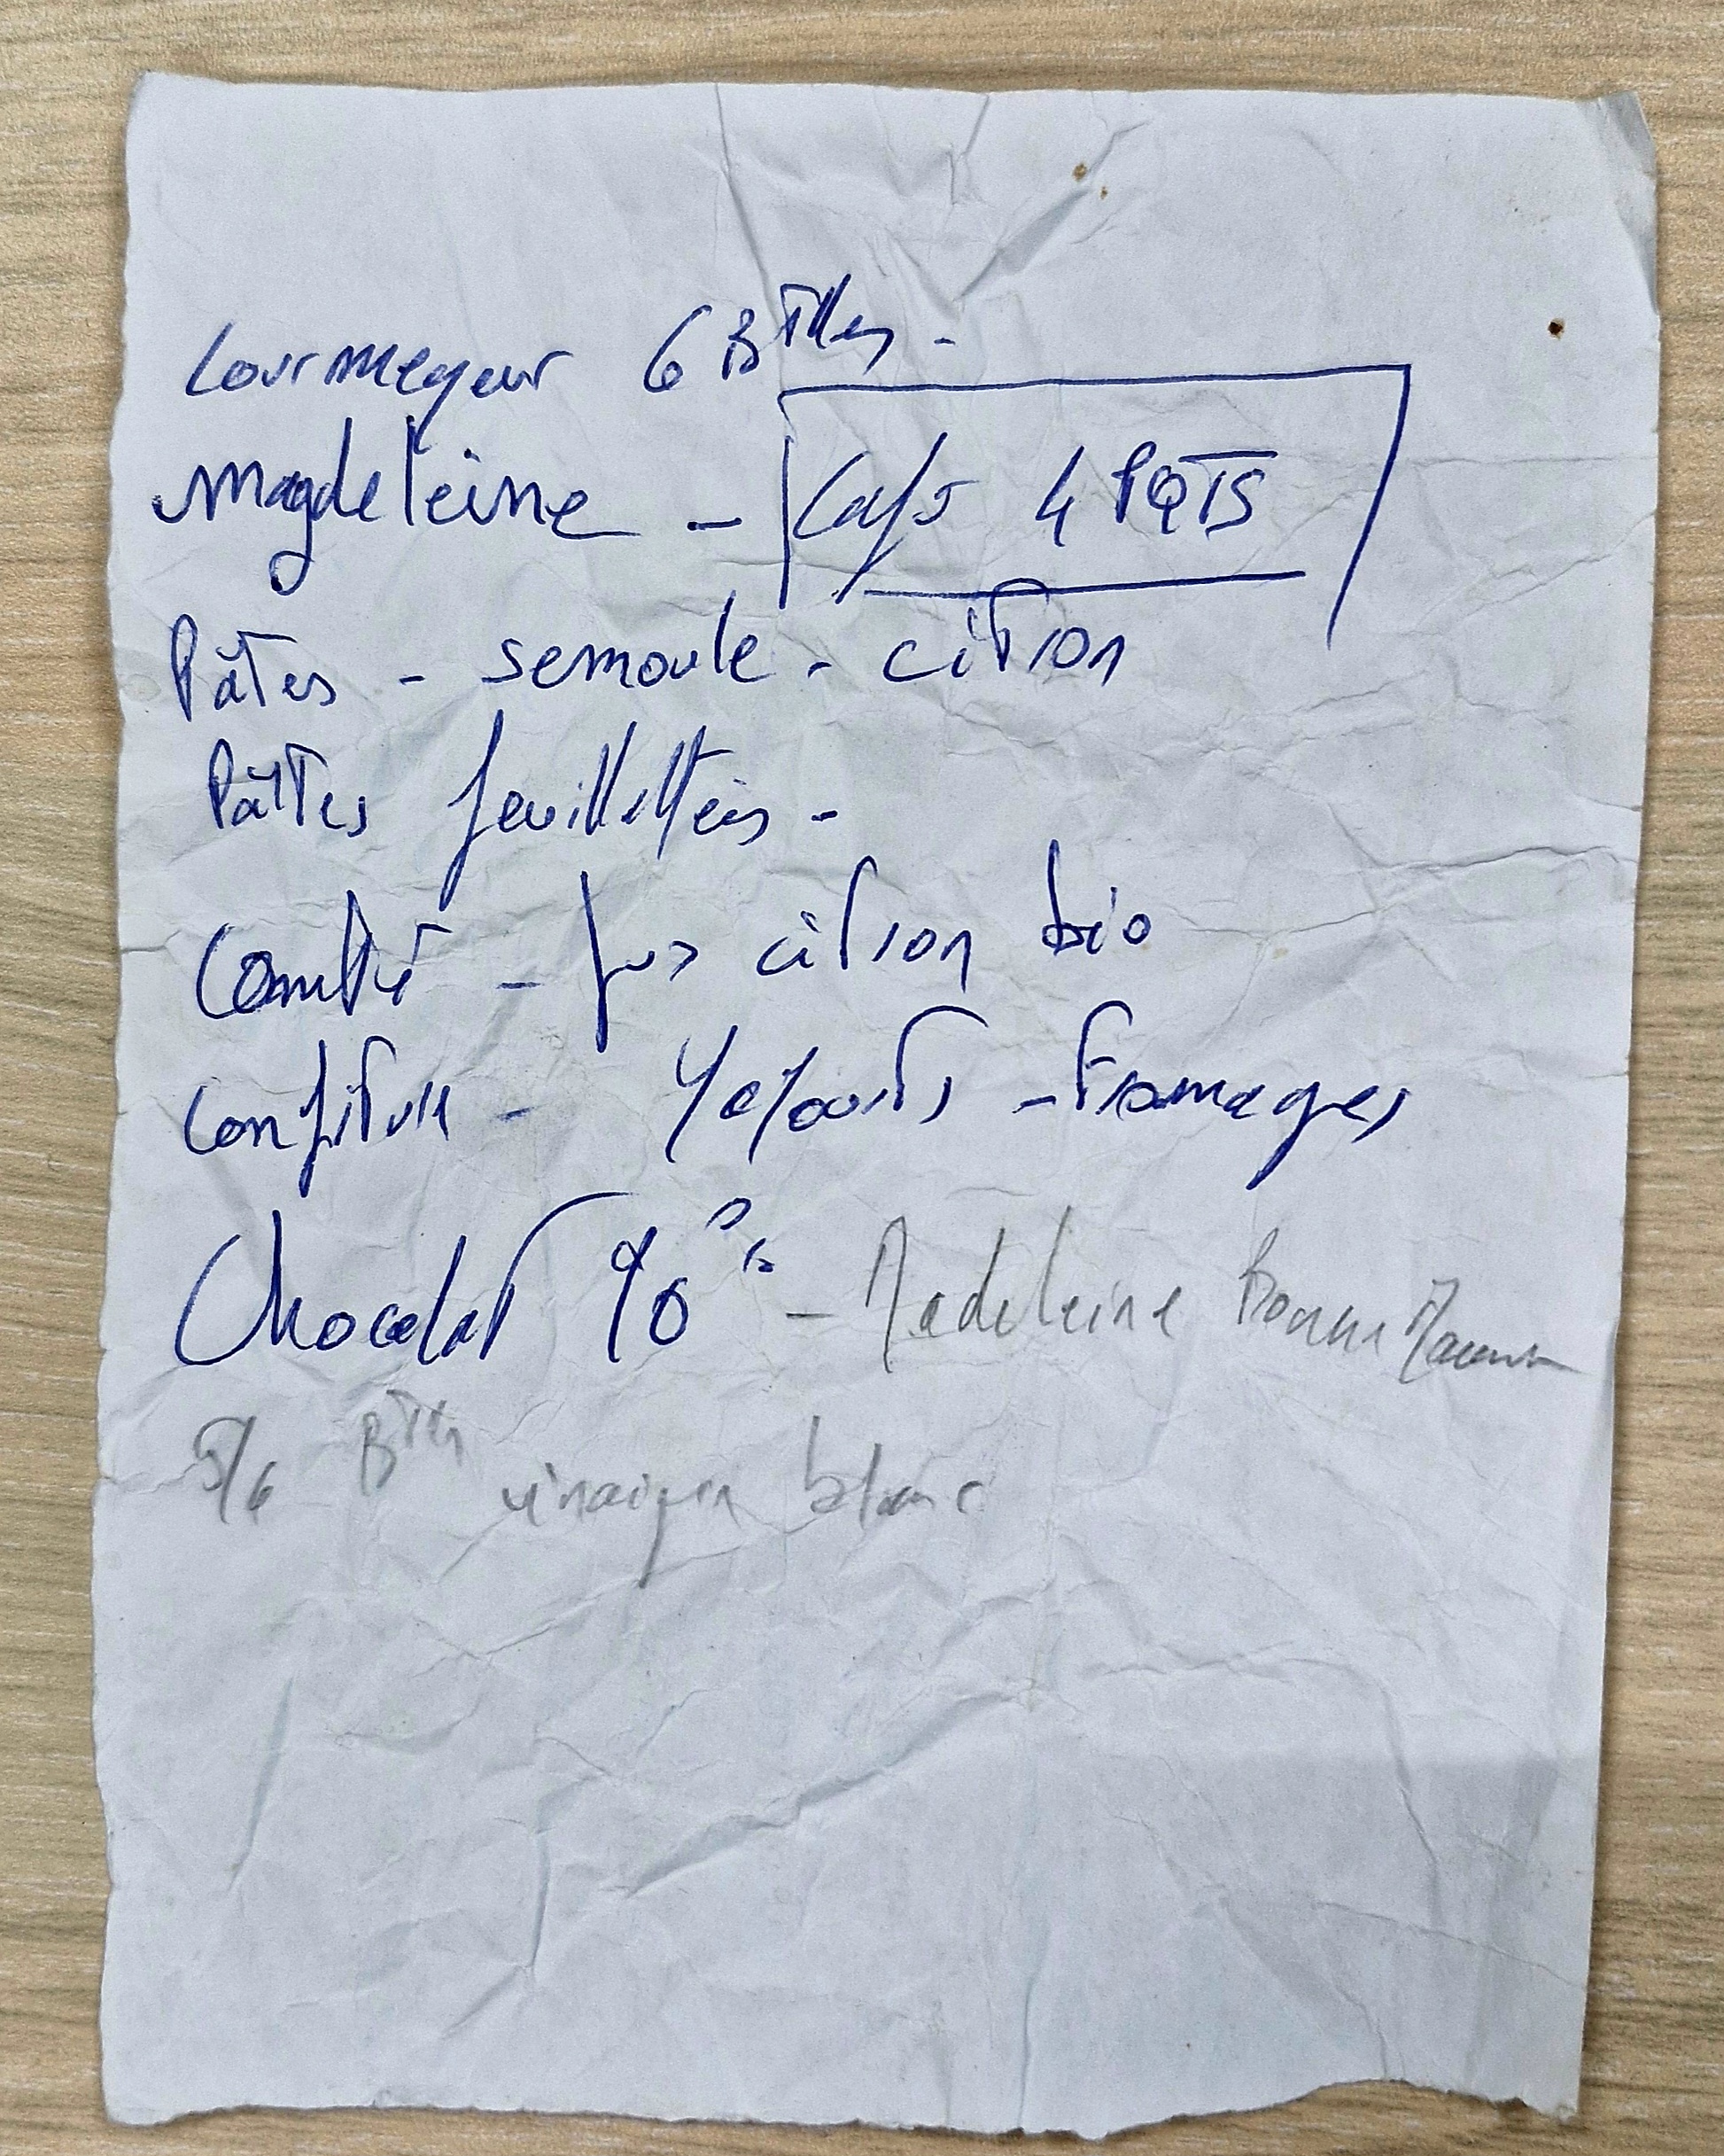 Courmayeur 6 Btlles -
Magdeleine - Café 4 PQTS
Pâtes - semoule - citron
Pâtes feuilletées -
Comté - Jus citron bio
Confiture - Yaourts - Fromages
Chocolat 90% - Madeleine Bonne Maman
5/6 Btlles vinaigre blanc